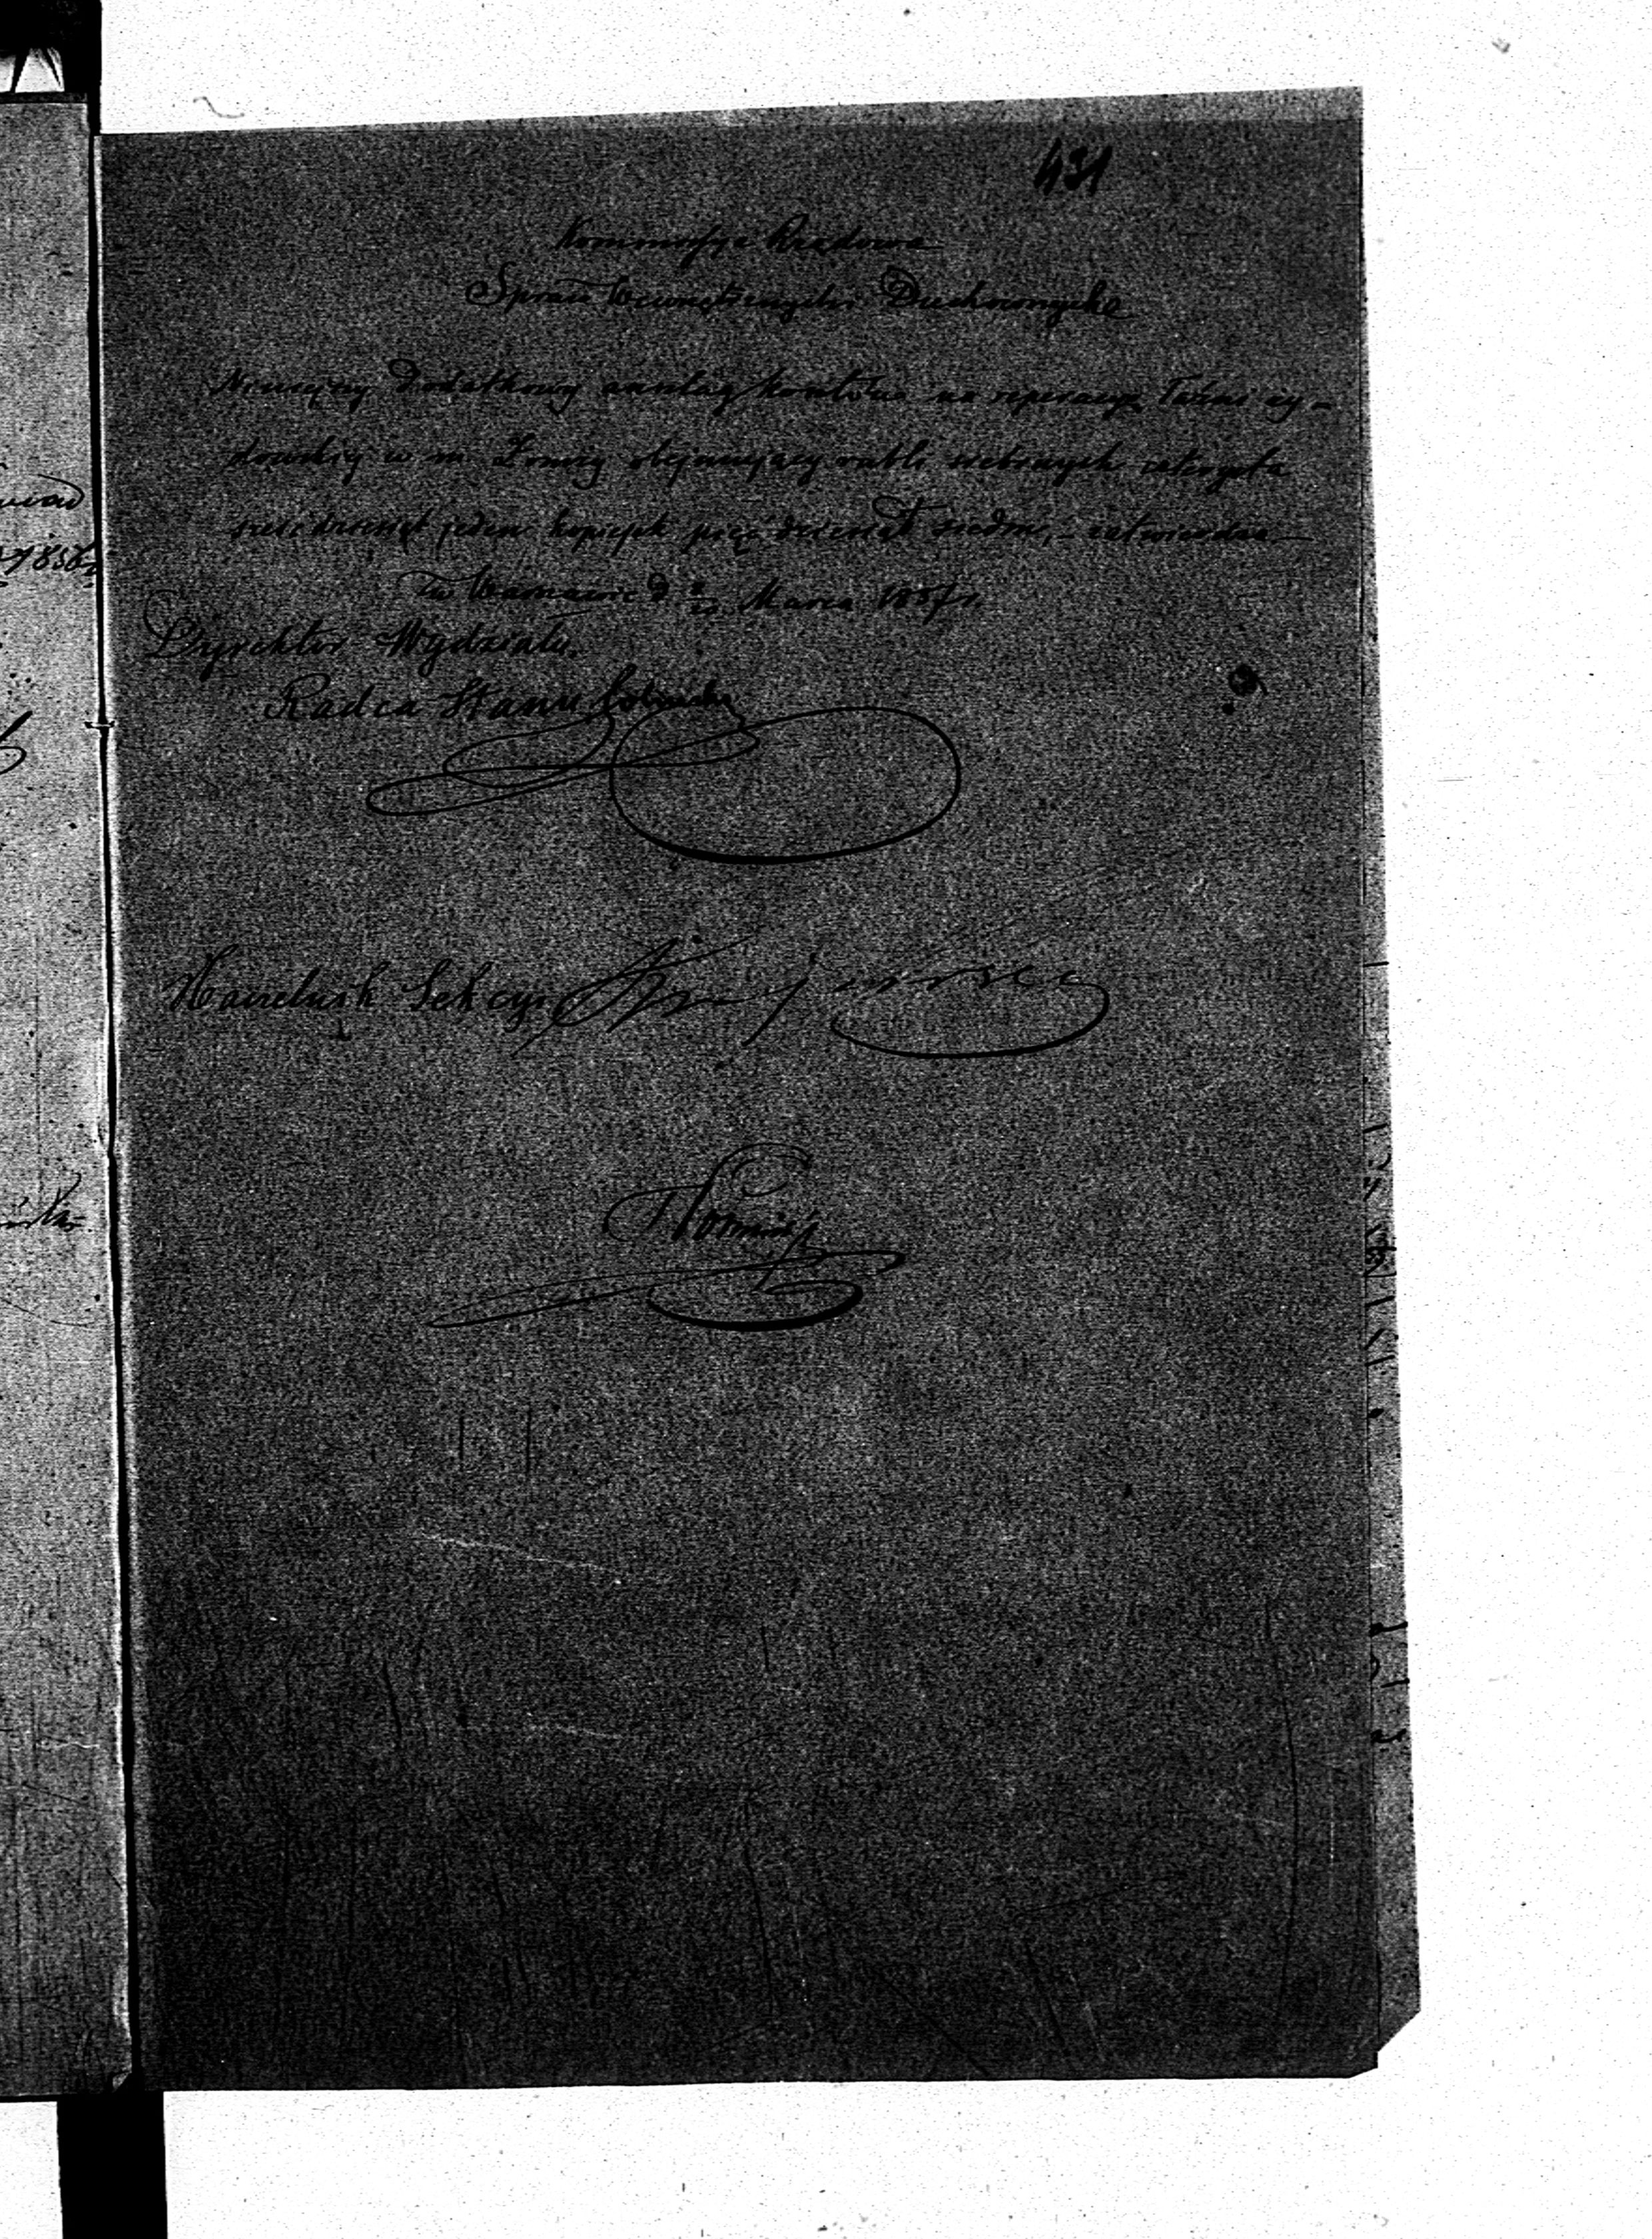 431
Kommissya Rządowa
Spraw Wewnętrznych i Duchownych
Niniejszy dodatkowy anszlag kosztów na reperacyę Łaźni ży-
dowskiej w m. Łomży obejmujący rubli srebrnych czterysta
sześćdziesiąt jeden kopiejek pięćdziesiąt siedm, – zatwierdza
w Warszawie d Marca 1857 r.
Dyrektor Wydziału,
Radca Stanu
Naczelnik Sekcyi
1856